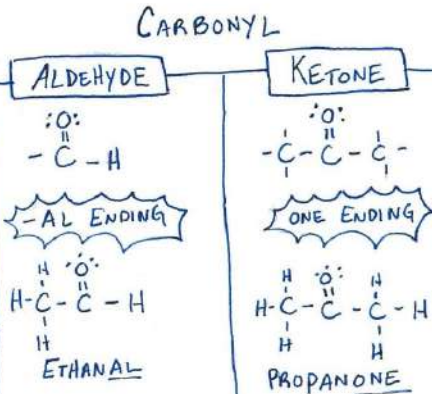 CARBONYL
ALDEHYDE
:O:
||
- C - H
-AL ENDING
H :O:
| ||
H-C-C-H
|
H
ETHANAL
KETONE
:O:
| || |
-C-C-C-
| |
ONE ENDING
H :O: H
| || |
H-C-C-C-H
| |
H H
PROPANONE